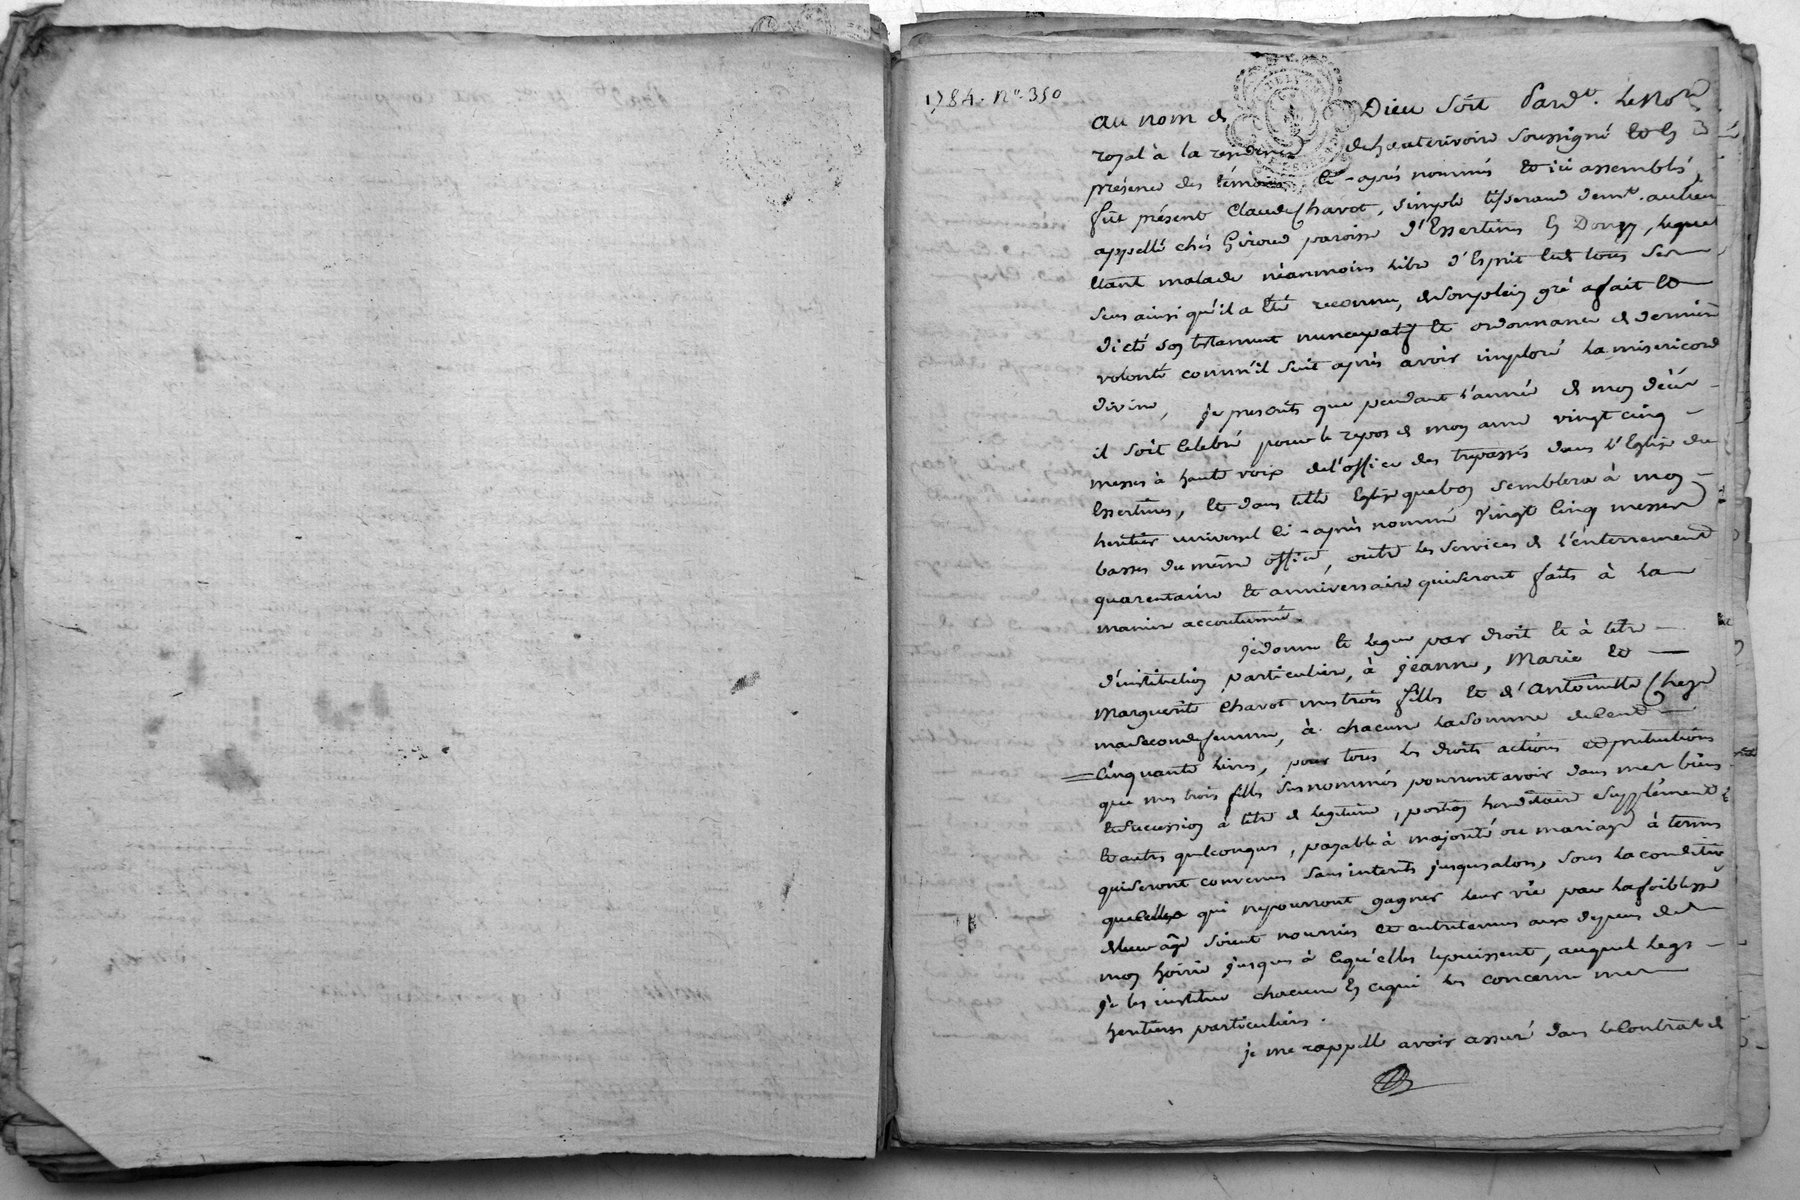 1784. N°. 350
au nom de Dieu soit Pard^t. le No^re
royal à la residence de hauterivoire soussigné et en
présence des témoins ci-après nommés et ici assemblés,
fut présent Claude Chavot, simple tisserand dem^t. au lieu
appellé chés Giroud paroisse d'Essertines en Donzy, lequel
étant malade néanmoins libre d'Esprit et de tous ses
sens ainsi qu'il a été reconnu, de son plein gré a fait et
dicté son testament nuncupatif et ordonnance de dernière
volonté comm'il suit après avoir imploré la misericorde
divine, je prescrits que pendant l'année de mon décès
il soit celebré pour le repos de mon ame vingt cinq
messes à haute voix de l'office des trepassés dans l'Eglise du
Essertines, et dans telle Eglise que bon semblera à mon
heritier universel ci-après nommé vingt cinq messes
basses du même office, outre les services de l'enterrement
quarentaine et anniversaire qui seront faits à la
maniere accoutumée.
je donne et legue par droit et à titre
d'institution particuliere, à jeanne, Marie et
Marguerite Chavot mes trois filles et d'Antoinette Cheze
ma seconde femme, à chacune la somme de cent
cinquante livres, pour tous les droits actions et pretentions
que mes trois filles susnommées pourront avoir dans mes biens
et succession à titre de legitime, portion hereditaire supplément
et autres quelconques, payable à majorité ou mariage à termes
qui seront convenus sans interets jusqu'alors, sous la condition
que celles qui ne pourront gagner leur vie par la foiblesse
de leur âge soient nourries et entretenues aux depens de
mon hoirie jusques à ce qu'elles le puissent, auquel legs
je les institue chacune en ce qui les concerne mes
heritieres particulieres.
je me rappelle avoir assuré dans le Contrat de